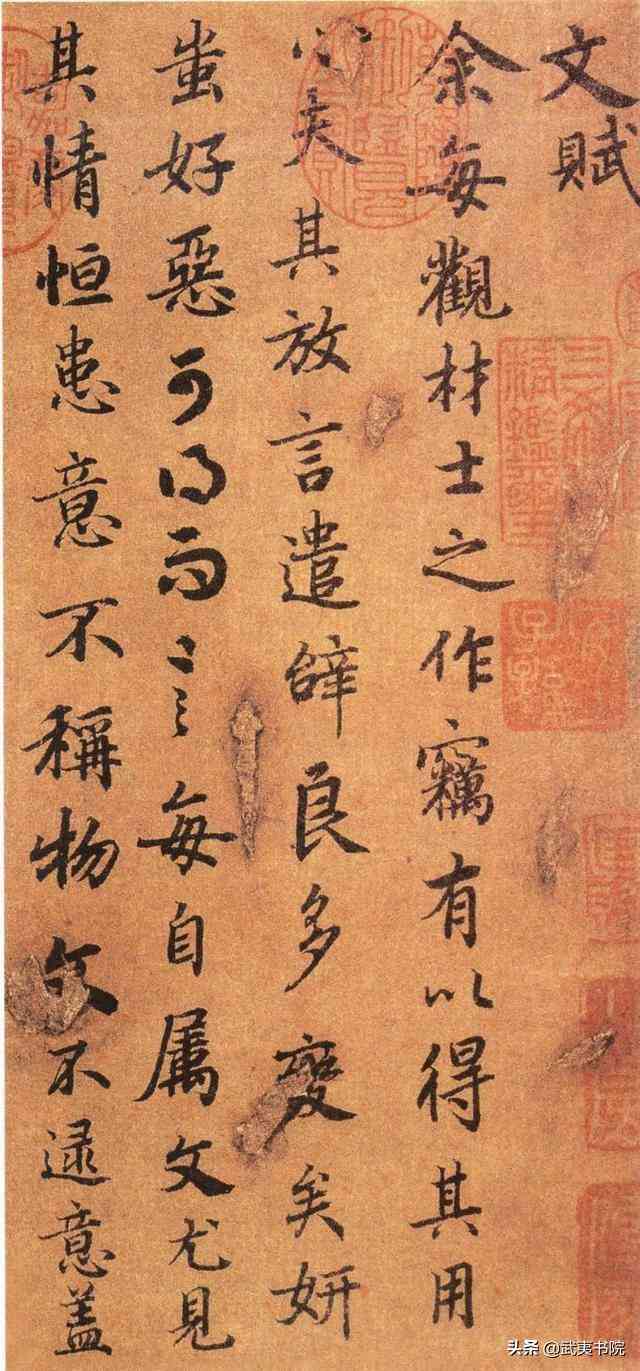 文賦
余每觀材士之作竊有以得其用
心夫其放言遣辝良多變矣妍
蚩好惡可得而言〻每自属文尤見
其情恒患意不稱物文不逮意盖
头条 @武夷书院